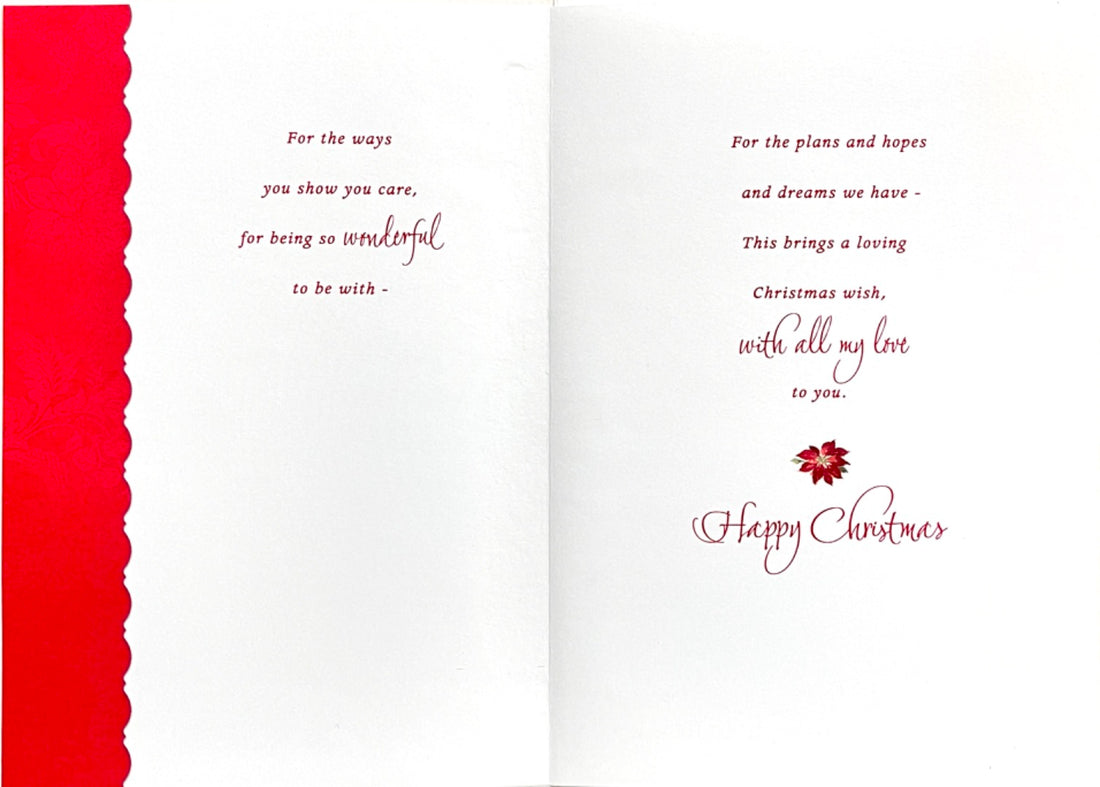 For the ways
you show you care,
for being so wonderful
to be with -
For the plans and hopes
and dreams we have -
This brings a loving
Christmas wish,
with all my love
to you.
Happy Christmas